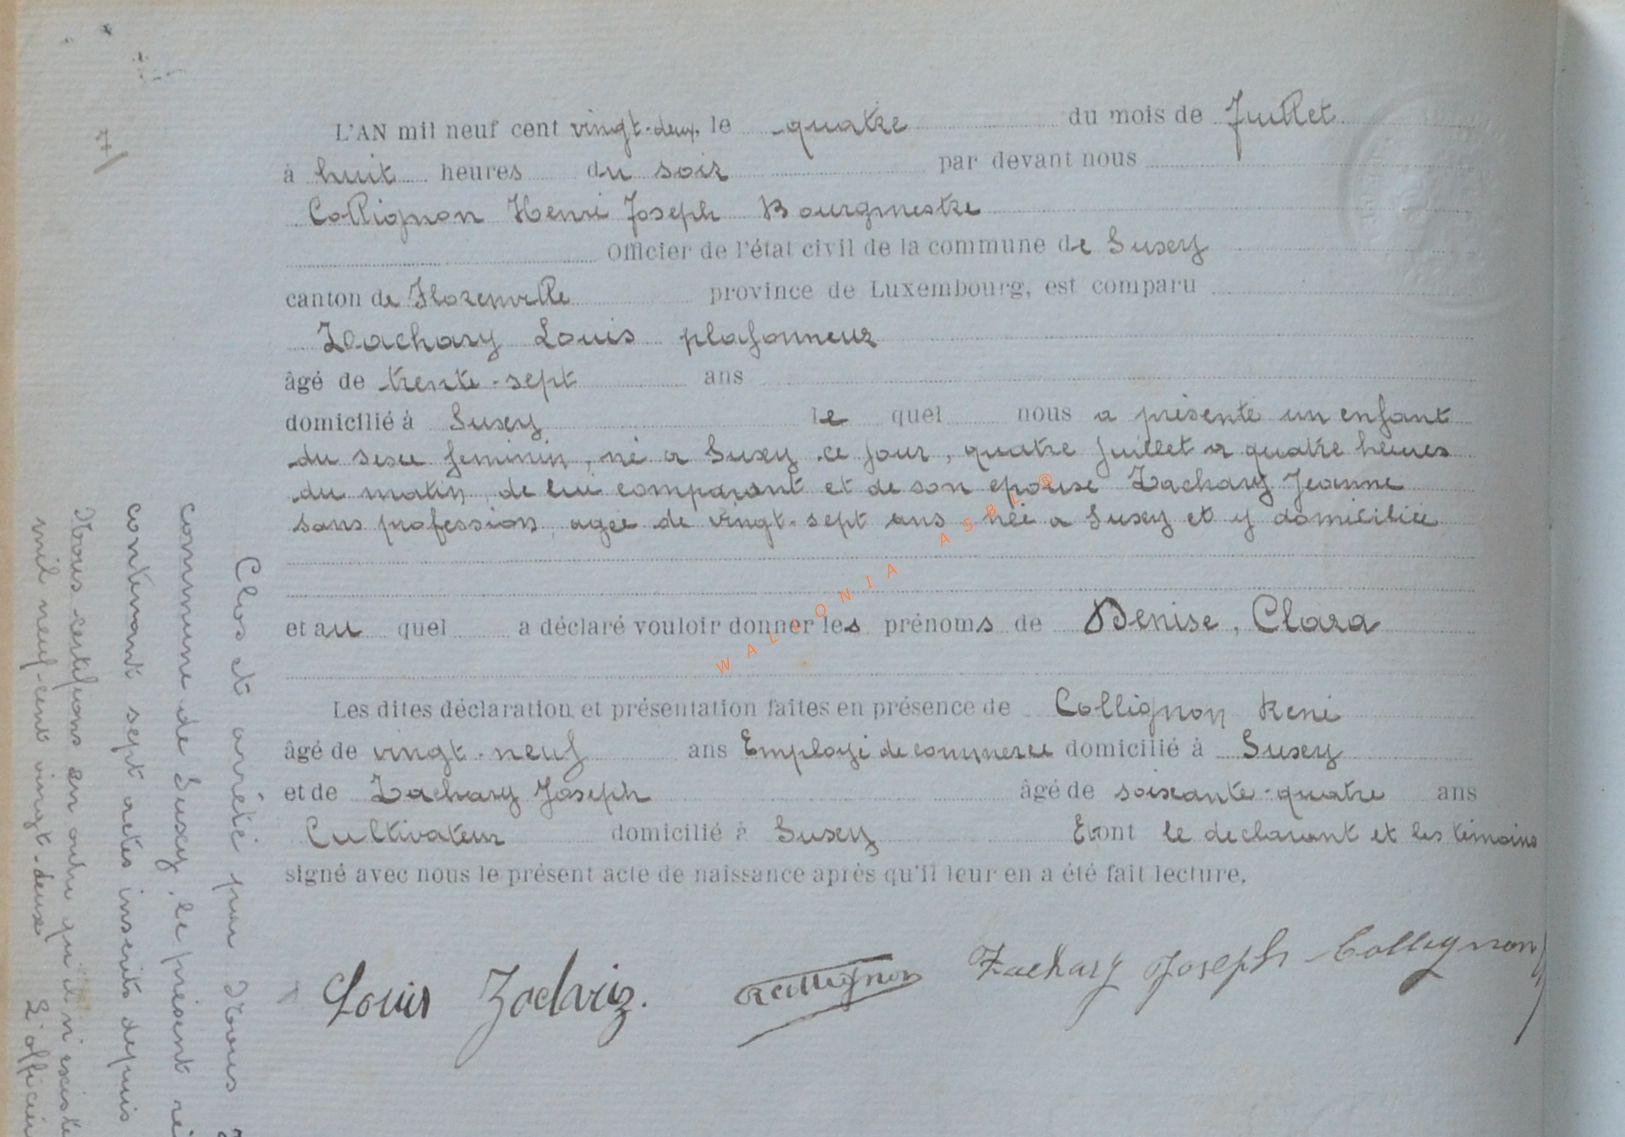 7/
L'AN mil neuf cent vingt-deux, le quatre du mois de Juillet
à huit heures du soir par devant nous
Collignon Henri Joseph Bourgmestre
Officier de l'état civil de la commune de Suxy
canton de Florenville province de Luxembourg, est comparu
Zachary Louis plafonneur
âgé de trente-sept ans
domicilié à Suxy le quel nous a présenté un enfant
du sexe feminin, né a Suxy ce jour, quatre juillet a quatre heures
du matin, de lui comparant et de son epouse Zachary Jeanne
sans profession, agée de vingt-sept ans née a Suxy et y domiciliée
et au quel a déclaré vouloir donner les prénoms de Denise, Clara
Les dites déclaration et présentation faites en présence de Collignon René
âgé de vingt-neuf ans Employé de commerce domicilié à Suxy
et de Zachary Joseph âgé de soixante-quatre ans
Cultivateur domicilié à Suxy Et ont le declarant et les témoins
signé avec nous le présent acte de naissance après qu'il leur en a été fait lecture.
Louis Zachary. RCollignon Zachary Joseph Collignon
Clos et arrété par Nous
commune de Suxy, le présent
contenant sept actes inscrits depuis
Nous certifions en outre qu'il n'existe
mil neuf-cent vingt-deux L'officier
WALLONIA ASBL ®